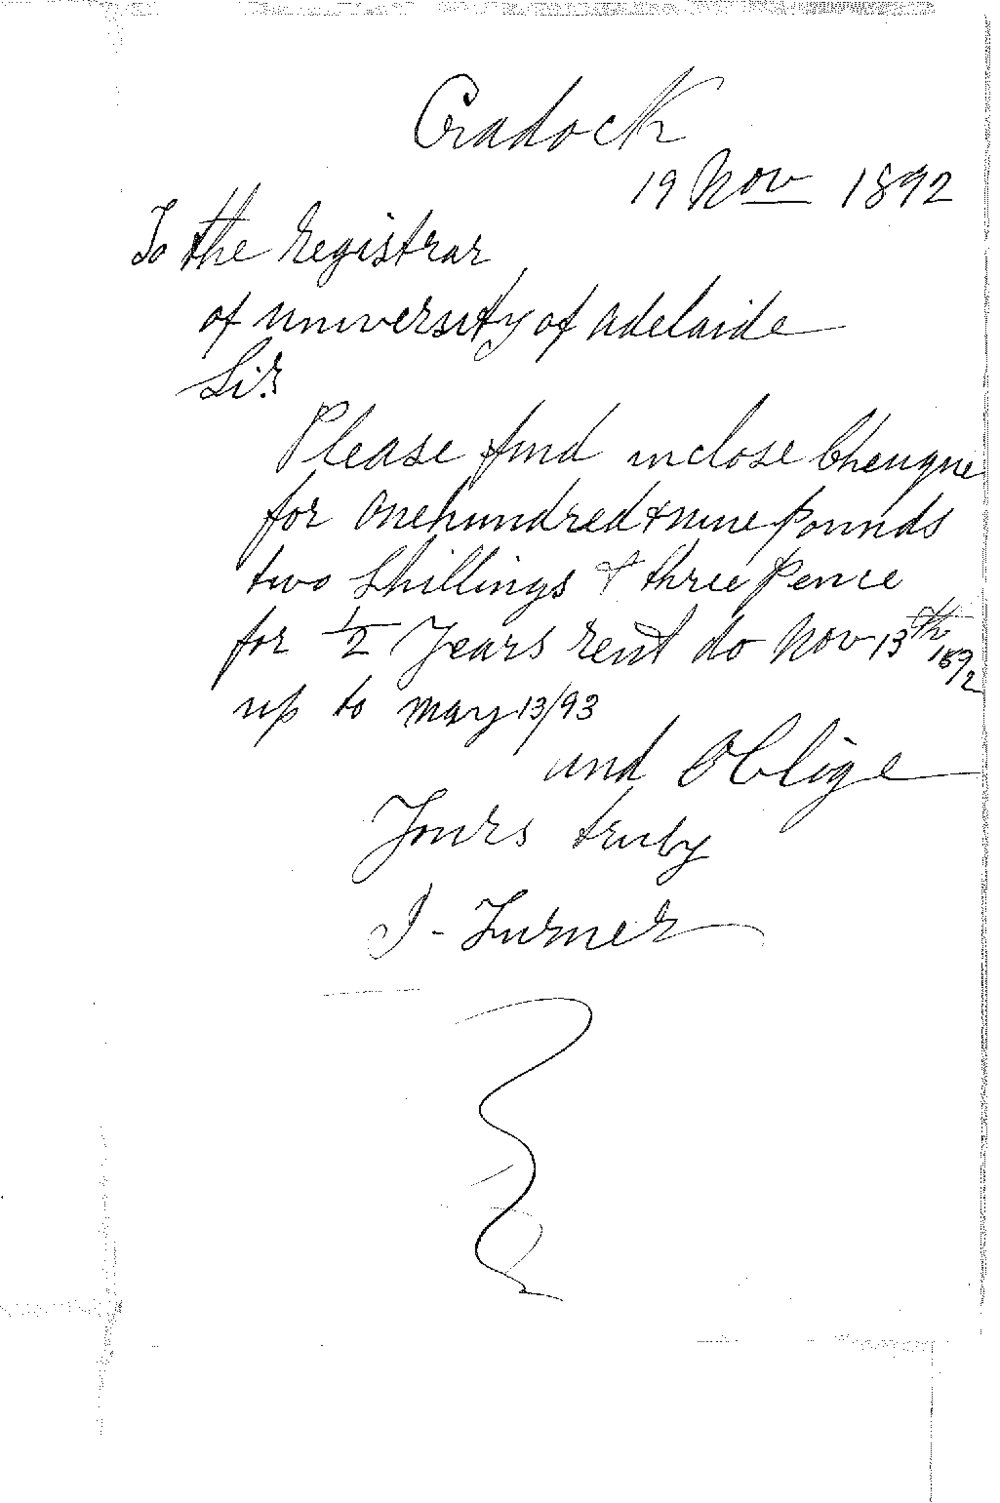 Cradock
19 Nov 1892
To the Registrar
of university of adelaide
Sir
Please find inclose Cheuque
for One hundred & nine pounds
two Shillings & three pence
for 1/2 Years rent do Nov 13th 1892
up to may 13/93
and Oblige
Yours truly
J - Turner